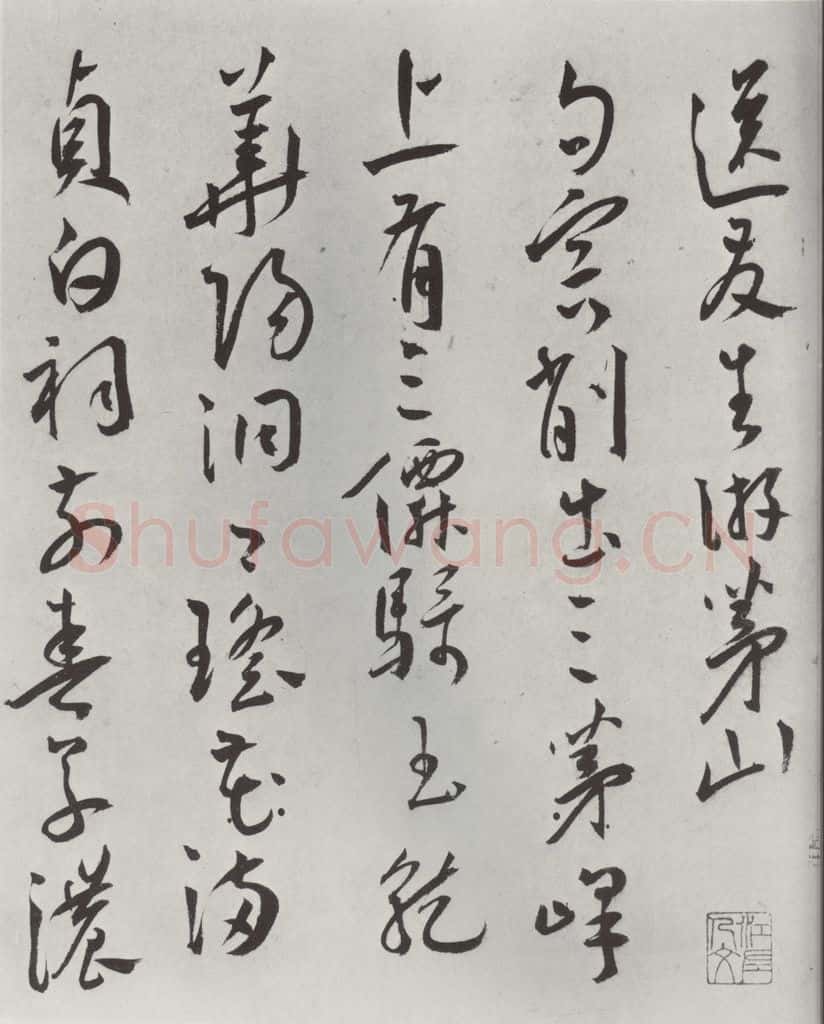 送友生游茅山
句容削出三茅峰
上有三僊騎玉龍
華陽洞口瑤花滿
貞白祠前春草濃
Shufawang.CN